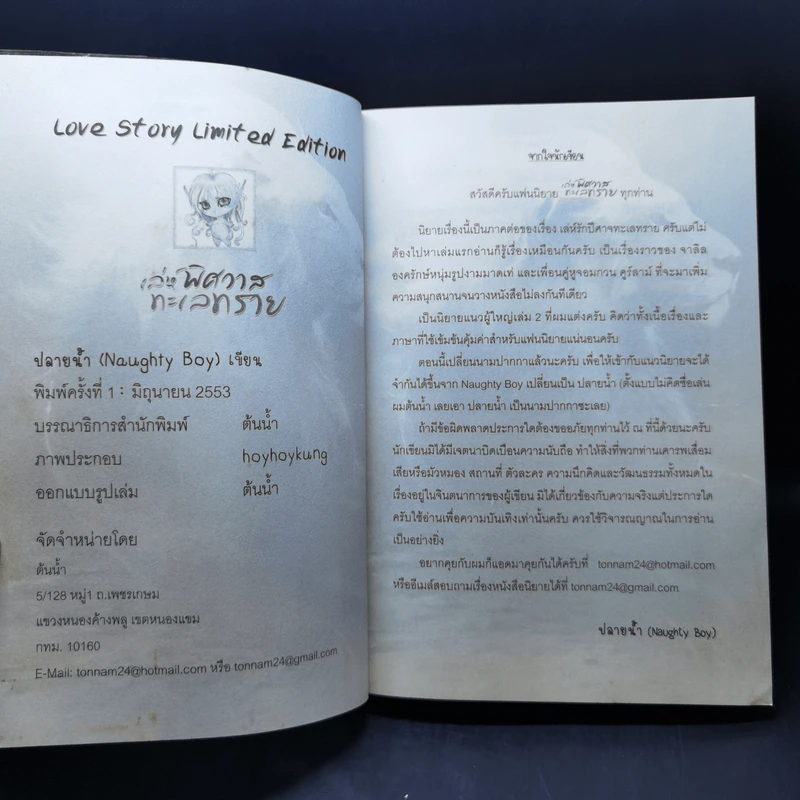 Love Story Limited Edition
เล่ห์พิศวาส
ทะเลทราย
ปลายน้ำ (Naughty Boy) เขียน
พิมพ์ครั้งที่ 1 : มิถุนายน 2553
บรรณาธิการสำนักพิมพ์ ต้นน้ำ
ภาพประกอบ hoyhoykung
ออกแบบรูปเล่ม ต้นน้ำ
จัดจำหน่ายโดย
ต้นน้ำ
5/128 หมู่1 ถ.เพชรเกษม
แขวงหนองค้างพลู เขตหนองแขม
กทม. 10160
E-Mail: tonnam24@hotmail.com หรือ tonnam24@gmail.com
จากใจนักเขียน
สวัสดีครับแฟนนิยาย เล่ห์พิศวาสทะเลทราย ทุกท่าน
นิยายเรื่องนี้เป็นภาคต่อของเรื่อง เล่ห์รักปีศาจทะเลทราย ครับแต่ไม่
ต้องไปหาเล่มแรกอ่านก็รู้เรื่องเหมือนกันครับ เป็นเรื่องราวของ จาลิล
องครักษ์หนุ่มรูปงามมาดเท่ และเพื่อนคู่หูจอมกวน คูร์ลามัวร์ ที่จะมาเพิ่ม
ความสนุกสนานจนวางหนังสือไม่ลงกันทีเดียว
เป็นนิยายแนวผู้ใหญ่เล่ม 2 ที่ผมแต่งครับ คิดว่าทั้งเนื้อเรื่องและ
ภาษาที่ใช้เข้มข้นคุ้มค่าสำหรับแฟนนิยายแน่นอนครับ
ตอนนี้เปลี่ยนนามปากกาแล้วนะครับ เพื่อให้เข้ากับแนวนิยายจะได้
จำกันได้ขึ้นจาก Naughty Boy เปลี่ยนเป็น ปลายน้ำ (ตั้งแบบไม่คิดชื่อเล่น
ผมต้นน้ำ เลยเอา ปลายน้ำ เป็นนามปากกาซะเลย)
ถ้ามีข้อผิดพลาดประการใดต้องขออภัยทุกท่านไว้ ณ ที่นี้ด้วยนะครับ
นักเขียนมิได้มีเจตนาบิดเบือนความนับถือ ทำให้สิ่งที่พวกท่านเคารพเสื่อม
เสียหรือมัวหมอง สถานที่ ตัวละคร ความนึกคิดและวัฒนธรรมทั้งหมดใน
เรื่องอยู่ในจินตนาการของผู้เขียน มิได้เกี่ยวข้องกับความจริงแต่ประการใด
ครับใช้อ่านเพื่อความบันเทิงเท่านั้นครับ ควรใช้วิจารณญาณในการอ่าน
เป็นอย่างยิ่ง
อยากคุยกับผมก็แอดมาคุยกันได้ครับที่ tonnam24@hotmail.com
หรืออีเมล์สอบถามเรื่องหนังสือนิยายได้ที่ tonnam24@gmail.com
ปลายน้ำ (Naughty Boy)